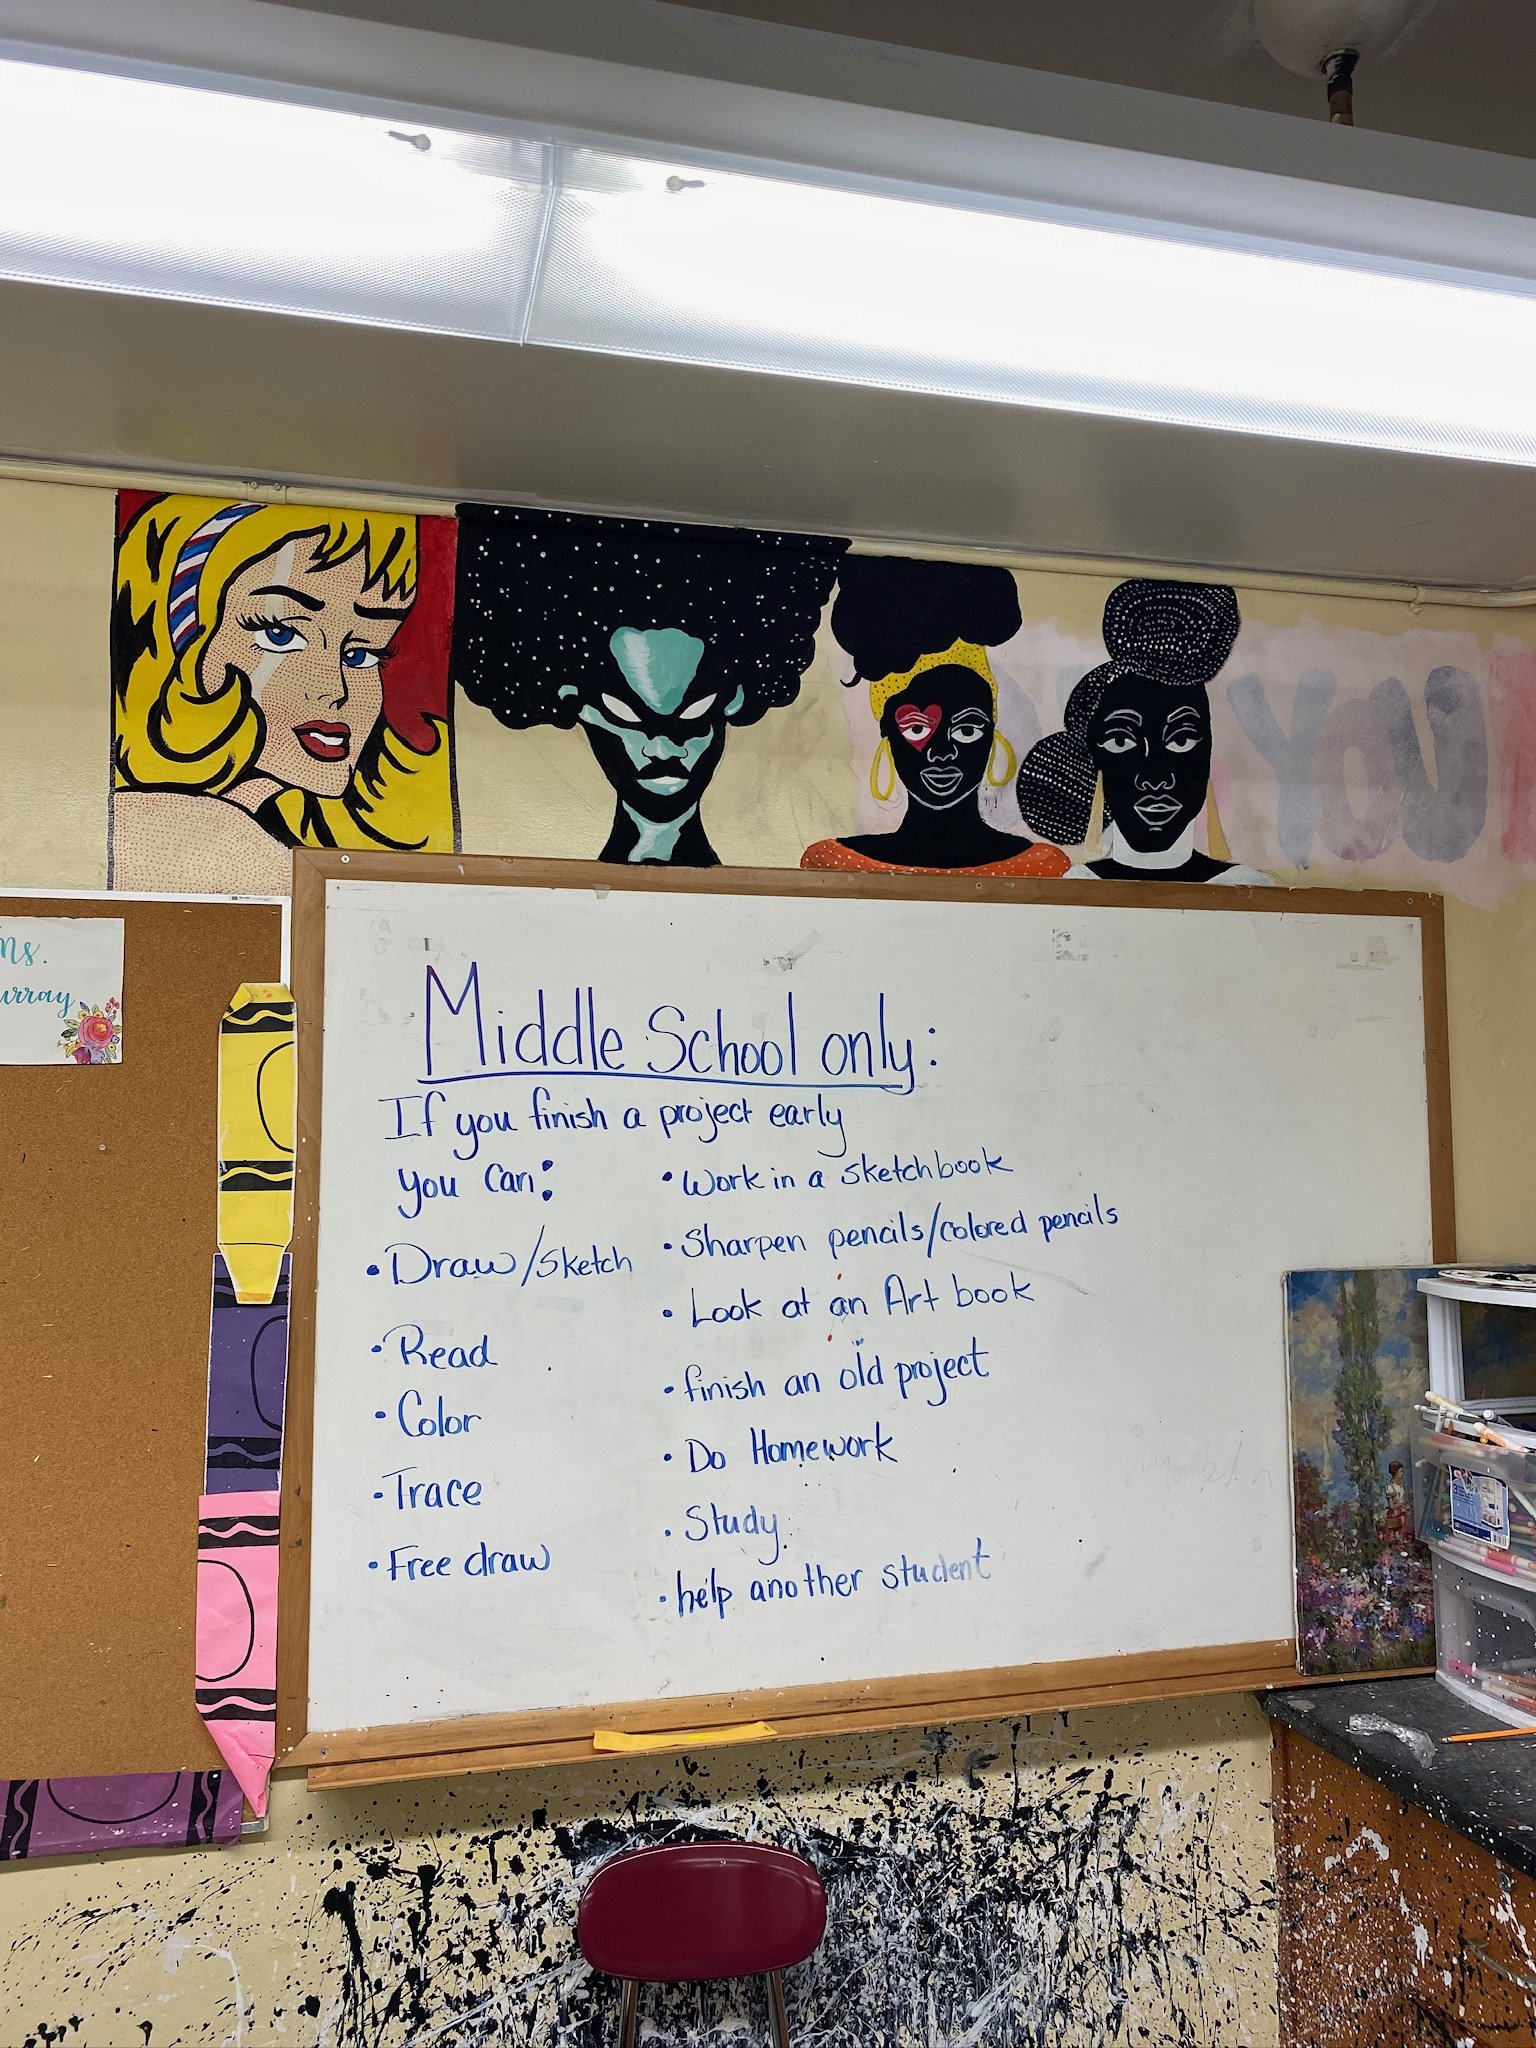 YOU
Ms.
urray
Middle School only:
If you finish a project early
you can:
• Draw/Sketch
• Read
• Color
• Trace
• Free draw
• Work in a sketchbook
• Sharpen pencils/colored pencils
• Look at an Art book
• finish an old project
• Do Homework
• Study
• help another student